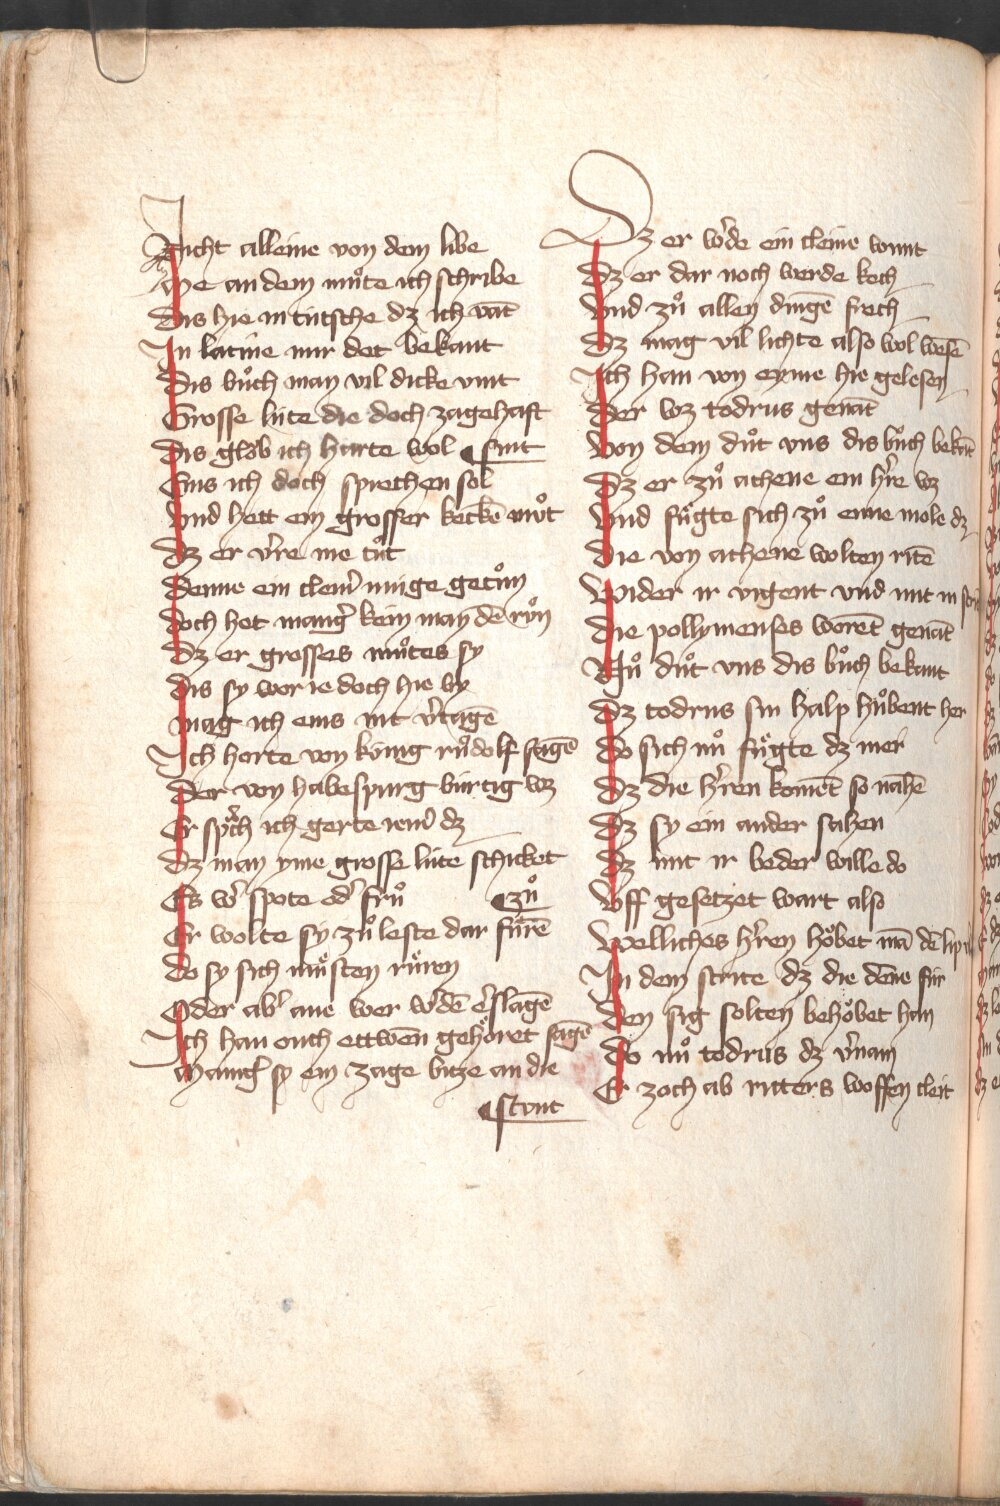 Nicht alleine von dem libe
Me an dem muͦte ich schribe
Dis hie in tútsche dz ich vāt
In latine mir det bekant
Dis buͦch man vil dicke vint
Grosse lúte die doch zagehaft
Dis gloͧb ich harte wol ¶ sint
Sus ich doch sprechen sol
Vnd hett ein grosser keckē muͦt
Dz er v̾re me tuͦt
Denne ein clein̾ múge getuͦn
Doch het mang̾ kein man dē ruͦn
Dz er grosses muͦtes sy
Dis sy wor ie doch hie by
Mag ich eins nit v̾tagē
Ich horte von kúnig ruͦdolf sagē
Der von habespurg búrtig wz
Er sprach ich gerte iem̾ dz
Dz man yme grosse lúte schicket
Es w̾ spote od̾ fruͦ ¶ zuͦ
Er wolte sy zuͦ leste dar fuͤrē
Do sy sich muͤsten ruͤren
Oder ab̾ ane wer w̾dē e̾slagē
Ich han ouch ettwen gehoͤret sagē
Manig̾ sy ein zage bitze an die
¶ stvnt
Dz er w̾de ein cleine wunt
Dz er dar noch werde kech
Vnd zuͦ allen dingē frech
Dz mag vil lichte also wol wesē
Ich han von eyme hie gelesen
Der wz todrus genāt
Von dem duͦt vns dis buͦch bekāt
Dz er zuͦ athene ein h̾re wz
Vnd fuͤgte sich zuͦ eime mole dz
Die von athene wolten ritē
Wider ir vigent vnd mit in strit
Die pollymenses worēt genāt
Nuͦ duͦt vns dis buͦch bekant
Dz todrus sin halp huͦbent her
Do sich nuͦ fuͤgte dz mer
Dz die h̾ren komēt so nahē
Dz sy ein ander sahen
Dz mit ir beder wille do
Vff gesetzet wart also
Welliches h̾ren hoͤbet mā dē lip
In dem strite dz die dēne fúr
Den sig solten behoͤbet han
Do nuͦ todrus dz v̾nam
Er zoch ab ritters woffen cleit